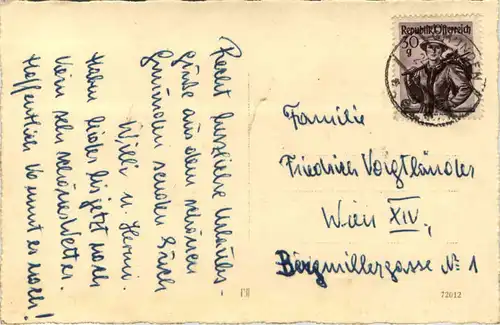 Recht herzliche Urlaubs-
grüße aus dem schönen
Gmünden senden Euch
Willi u. Hermi.
Haben leider bis jetzt noch
kein sehr schönes Wetter.
Hoffentlich kommt es noch!
Republik Österreich
30
g
Familie
Friedrich Voigtländer
Wien XIV.,
Bergmillergasse № 1
72012